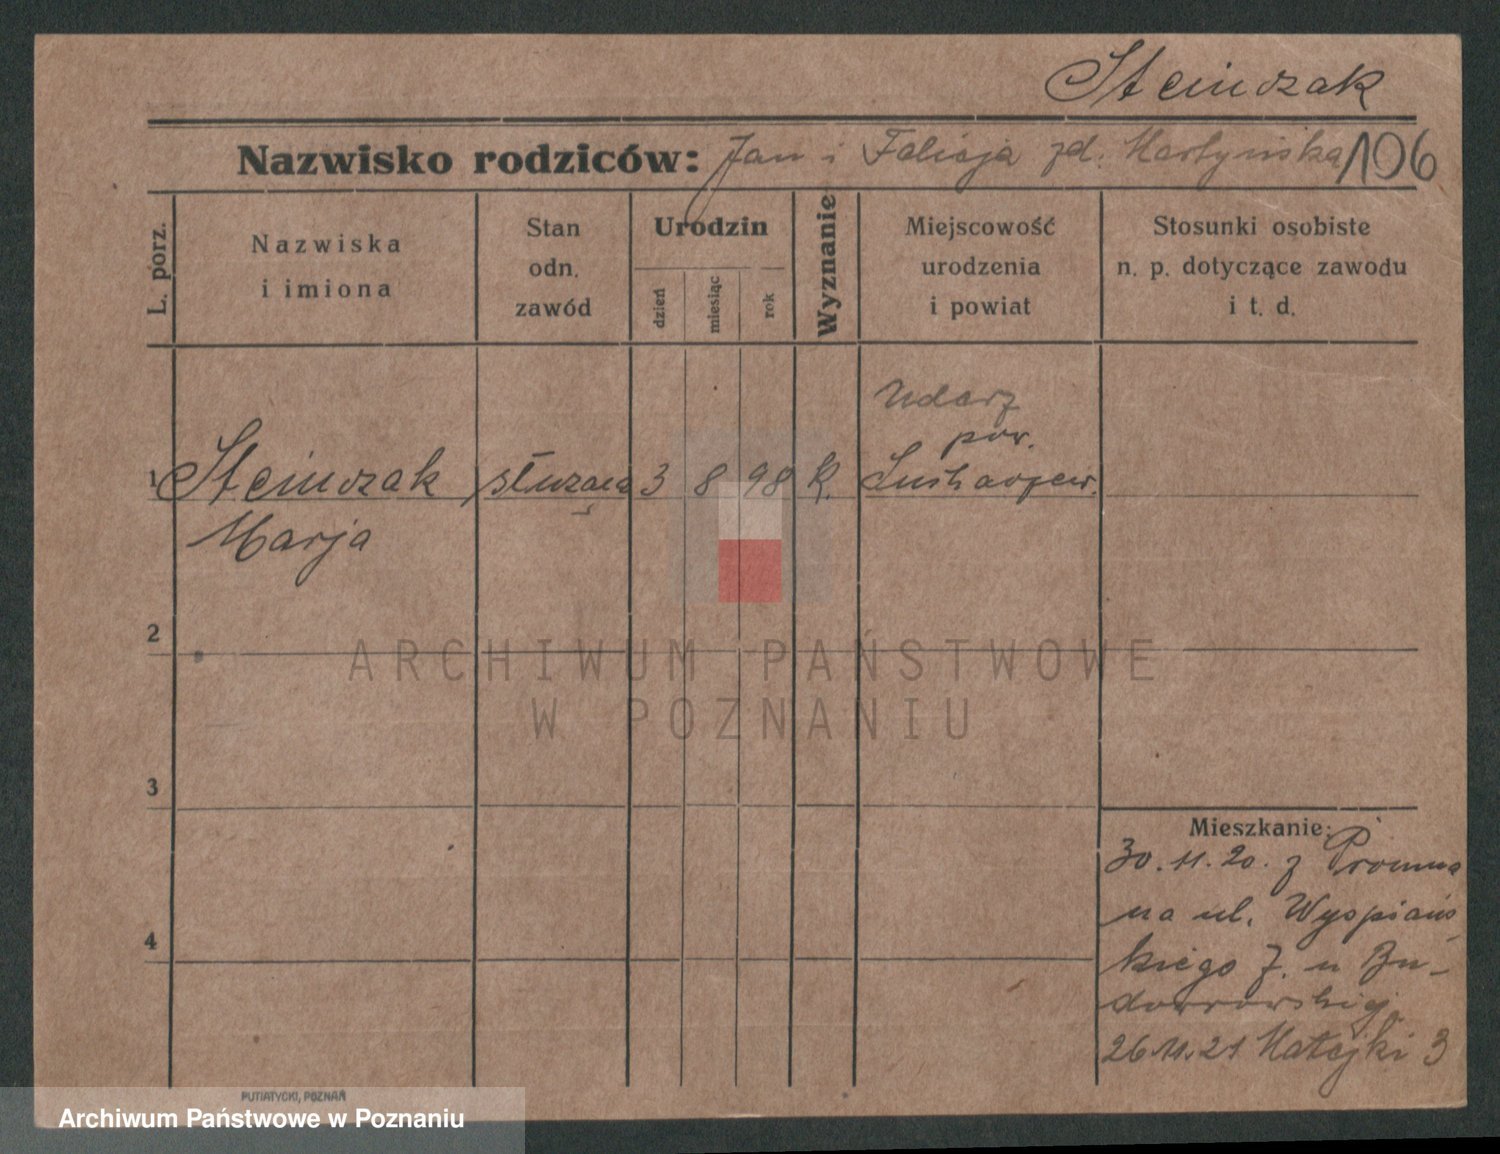 Steinczak
Nazwisko rodziców: Jan i Felicja zd. Martyńska 106
L. porz.
Nazwiska
i imiona
Stan
odn.
zawód
Urodzin
dzień
miesiąc
rok
Wyznanie
Miejscowość
urodzenia
i powiat
Stosunki osobiste
n. p. dotyczące zawodu
i t. d.
pow.
1 Steinczak służąca 3 8 98 k.
Marja
2
3
4
Mieszkanie:
30.11.20. z
na ul. Wyspiań
skiego 7. u Bu-
26.11.21 Matejki 3
PUTIATYCKI, POZNAŃ
ARCHIWUM PAŃSTWOWE
W POZNANIU
Archiwum Państwowe w Poznaniu